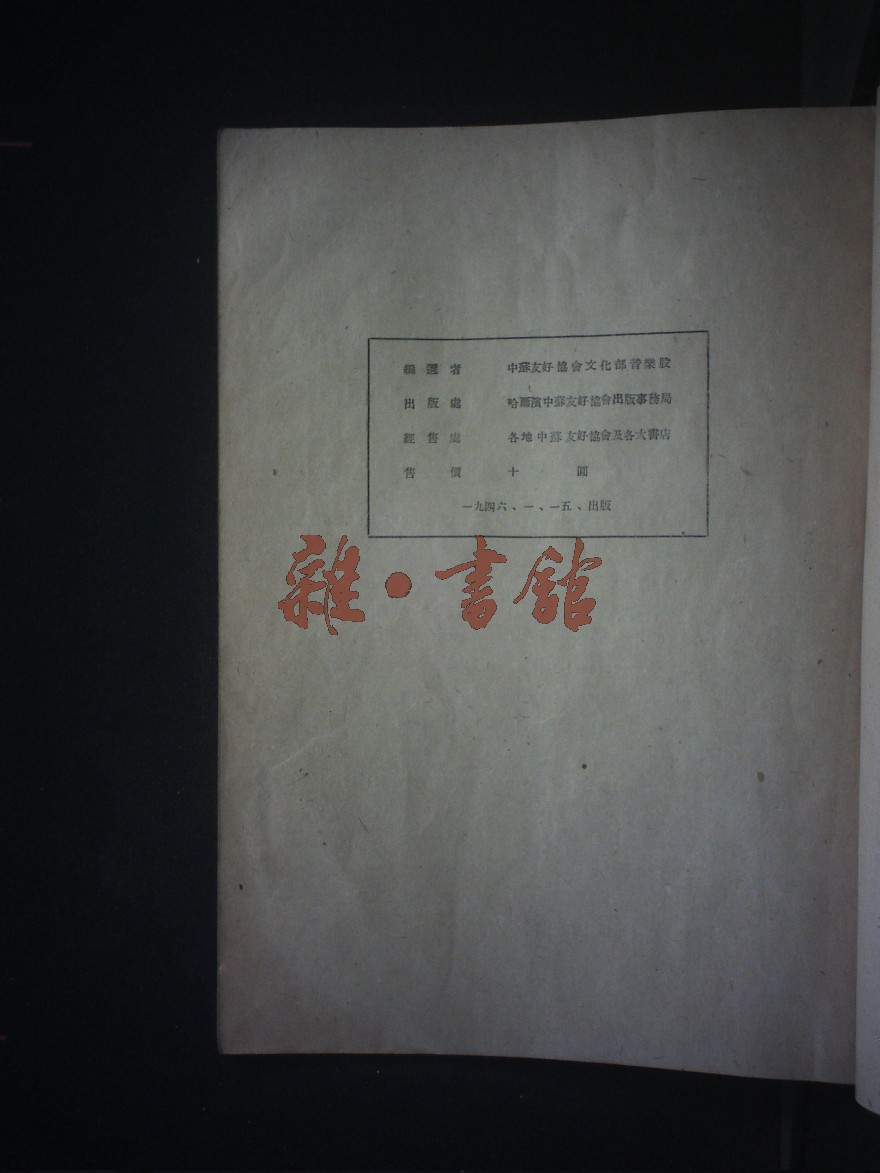 編選者 中蘇友好協會文化部營業股
出版處 哈爾濱中蘇友好協會出版事務局
經售處 各地中蘇友好協會及各大書店
售價 十圓
一九四六、一、一五、出版
雜·書館